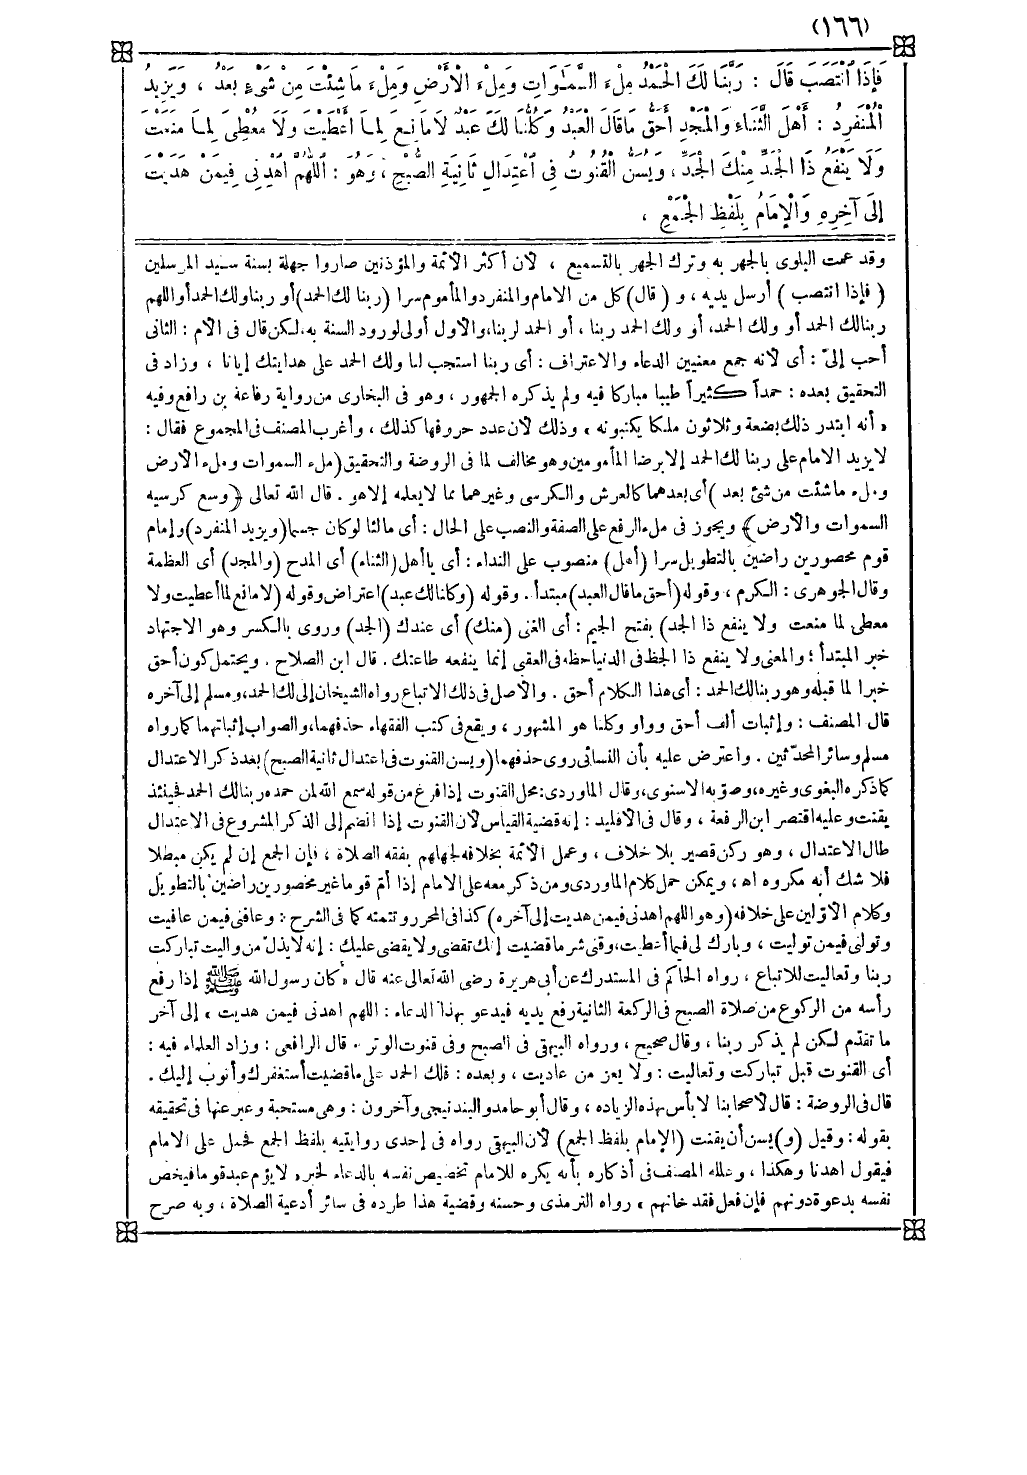 (١٦٦)
فَإِذَا انْتَصَبَ قَالَ : رَبَّنَا لَكَ الْحَمْدُ مِلْءَ السَّمَوَاتِ وَمِلْءَ الْأَرْضِ وَمِلْءَ مَا شِئْتَ مِنْ شَيْءٍ بَعْدُ ، وَيَزِيدُ
الْمُنْفَرِدُ : أَهْلَ الثَّنَاءِ وَالْمَجْدِ أَحَقُّ مَا قَالَ الْعَبْدُ وَكُلُّنَا لَكَ عَبْدٌ لَا مَانِعَ لِمَا أَعْطَيْتَ وَلَا مُعْطِيَ لِمَا مَنَعْتَ
وَلَا يَنْفَعُ ذَا الْجَدِّ مِنْكَ الْجَدُّ ، وَيُسَنُّ الْقُنُوتُ فِي اعْتِدَالِ ثَانِيَةِ الصُّبْحِ ، وَهُوَ : اللَّهُمَّ اهْدِنِي فِيمَنْ هَدَيْتَ
إِلَى آخِرِهِ وَالْإِمَامُ بِلَفْظِ الْجَمْعِ ،
وقد عمت البلوى بالجهر به وترك الجهر بالتسميع ، لأن أكثر الأئمة والمؤذنين صاروا جهلة بسنة سيد المرسلين
( فإذا انتصب ) أرسل يديه ، و ( قال) كل من الامام والمنفرد والمأموم سرا (ربنا لك الحمد) أو ربنا ولك الحمد أو اللهم
ربنا لك الحمد أو ولك الحمد، أو ولك الحمد ربنا ، أو الحمد لربنا، والأول أولى لورود السنة به. لكن قال فى الأم : الثانى
أحب إلىّ : أى لأنه جمع معنيين الدعاء والاعتراف : أى ربنا استجب لنا ولك الحمد على هدايتك إيانا ، وزاد فى
التحقيق بعده : حمداً كثيراً طيبا مباركا فيه ولم يذكره الجمهور ، وهو فى البخارى من رواية رفاعة بن رافع وفيه
« أنه ابتدر ذلك بضعة وثلاثون ملكا يكتبونه » وذلك لأن عدد حروفها كذلك ، وأغرب المصنف فى المجموع فقال :
لا يزيد الامام على ربنا لك الحمد إلا برضا المأمومين وهو مخالف لما فى الروضة والتحقيق (ملء السموات وملء الأرض
وملء ما شئت من شئ بعد ) أى بعدهما كالعرش والكرسى وغيرهما مما لا يعلمه إلا هو . قال الله تعالى ﴿وسع كرسيه
السموات والأرض﴾ ويجوز فى ملء الرفع على الصفة والنصب على الحال : أى مالئا لو كان جسما (ويزيد المنفرد) وإمام
قوم محصورين راضين بالتطويل سرا (أهل) منصوب على النداء : أى يا أهل (الثناء) أى المدح (والمجد) أى العظمة
وقال الجوهرى : الكرم ، وقوله (أحق ما قال العبد) مبتدأ . وقوله (وكلنا لك عبد) اعتراض وقوله (لا مانع لما أعطيت ولا
معطى لما منعت ولا ينفع ذا الجد) بفتح الجيم : أى الغنى (منك) أى عندك (الجد) وروى بالكسر وهو الاجتهاد
خبر المبتدأ ؛ والمعنى ولا ينفع ذا الحظ فى الدنيا حظه فى العقبى إنما ينفعه طاعتك . قال ابن الصلاح . ويحتمل كون أحق
خبرا لما قبله وهو ربنا لك الحمد : أى هذا الكلام أحق . والأصل فى ذلك الاتباع رواه الشيخان إلى لك الحمد، ومسلم إلى آخره
قال المصنف : وإثبات ألف أحق وواو وكلنا هو المشهور ، ويقع فى كتب الفقهاء حذفهما، والصواب إثباتهما كما رواه
مسلم وسائر المحدّثين . واعترض عليه بأن النسائى روى حذفهما (ويسن القنوت فى اعتدال ثانية الصبح) بعد ذكر الاعتدال
كما ذكره البغوى وغيره، وصوّبه الاسنوى، وقال الماوردى: محل القنوت إذا فرغ من قوله سمع الله لمن حمده ربنا لك الحمد فحينئذ
يقنت وعليه اقتصر ابن الرفعة ، وقال فى الاقليد : إنه قضية القياس لأن القنوت إذا انضم إلى الذكر المشروع فى الاعتدال
طال الاعتدال ، وهو ركن قصير بلا خلاف ، وعمل الأئمة بخلافه لجهلهم بفقه الصلاة ، فإن الجمع إن لم يكن مبطلا
فلا شك أنه مكروه اه ، ويمكن حمل كلام الماوردى ومن ذكر معه على الامام إذا أمّ قوما غير محصورين راضين بالتطويل
وكلام الأوّلين على خلافه (وهو اللهم اهدنى فيمن هديت إلى آخره) كذا فى المحرر وتتمته كما فى الشرح : وعافنى فيمن عافيت
وتولنى فيمن توليت ، وبارك لى فيما أعطيت، وقنى شر ما قضيت إنك تقضى ولا يقضى عليك : إنه لا يذلّ من واليت تباركت
ربنا وتعاليت للاتباع ، رواه الحاكم فى المستدرك عن أبى هريرة رضى الله تعالى عنه قال «كان رسول الله ﷺ إذا رفع
رأسه من الركوع من صلاة الصبح فى الركعة الثانية رفع يديه فيدعو بهذا الدعاء : اللهم اهدنى فيمن هديت » إلى آخر
ما تقدّم لكن لم يذكر ربنا ، وقال صحيح ، ورواه البيهقى فى الصبح وفى قنوت الوتر . قال الرافعى : وزاد العلماء فيه :
أى القنوت قبل تباركت وتعاليت : ولا يعز من عاديت ، وبعده : فلك الحمد على ما قضيت أستغفرك وأتوب إليك .
قال فى الروضة : قال أصحابنا لا بأس بهذه الزيادة ، وقال أبو حامد والبندنيجى وآخرون : وهى مستحبة وعبر عنها فى تحقيقه
بقوله : وقيل (و) يسن أن يقنت (الإمام بلفظ الجمع) لأن البيهقى رواه فى إحدى روايتيه بلفظ الجمع فحمل على الامام
فيقول اهدنا وهكذا ، وعلله المصنف فى أذكاره بأنه يكره للامام تخصيص نفسه بالدعاء لخبر « لا يؤم عبد قوما فيخص
نفسه بدعوة دونهم فإن فعل فقد خانهم » رواه الترمذى وحسنه وقضية هذا طرده فى سائر أدعية الصلاة ، وبه صرح